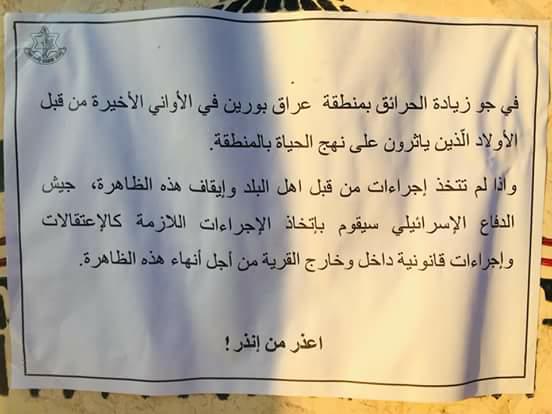 في جو زيادة الحرائق بمنطقة عراق بورين في الأواني الأخيرة من قبل
الأولاد الّذين ياثرون على نهج الحياة بالمنطقة.
واذا لم تتخذ إجراءات من قبل اهل البلد وإيقاف هذه الظاهرة، جيش
الدفاع الإسرائيلي سيقوم بإتخاذ الإجراءات اللازمة كالإعتقالات
وإجراءات قانونية داخل وخارج القرية من أجل أنهاء هذه الظاهرة.
اعذر من إنذر!